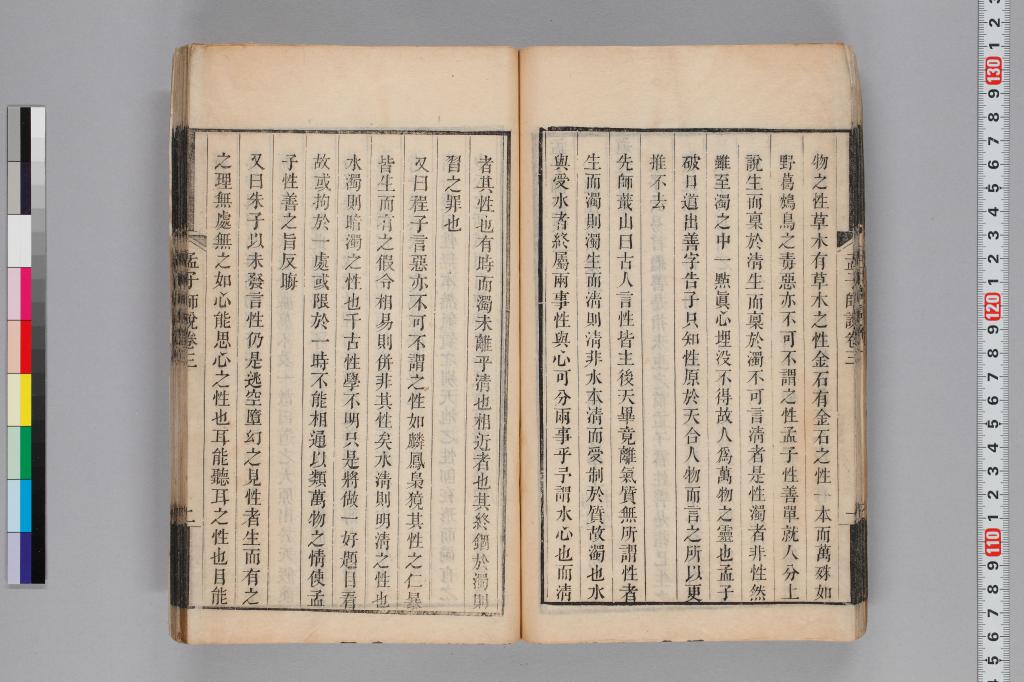 物之性草木有草木之性金石有金石之性一本而萬殊如
野葛鴆鳥之毒惡亦不可不謂之性孟子性善單就人分上
說生而稟於淸生而稟於濁不可言淸者是性濁者非性然
雖至濁之中一點眞心埋沒不得故人爲萬物之靈也孟子
破口道出善字告子只知性原於天合人物而言之所以更
推不去
先師蕺山曰古人言性皆主後天畢竟離氣質無所謂性者
生而濁則濁生而淸則淸非水本淸而受制於質故濁也水
與受水者終屬兩事性與心可分兩事乎予謂水心也而淸
孟子師說卷三
者其性也有時而濁未離乎淸也相近者也其終錮於濁則
習之罪也
又曰程子言惡亦不可不謂之性如麟鳳梟獍其性之仁暴
皆生而有之假令相易則併非其性矣水淸則明淸之性也
水濁則暗濁之性也千古性學不明只是將做一好題目看
故或拘於一處或限於一時不能相通以類萬物之情使孟
子性善之旨反晦
又曰朱子以未發言性仍是逃空墮幻之見性者生而有之
之理無處無之如心能思心之性也耳能聽耳之性也目能
孟子師說卷三